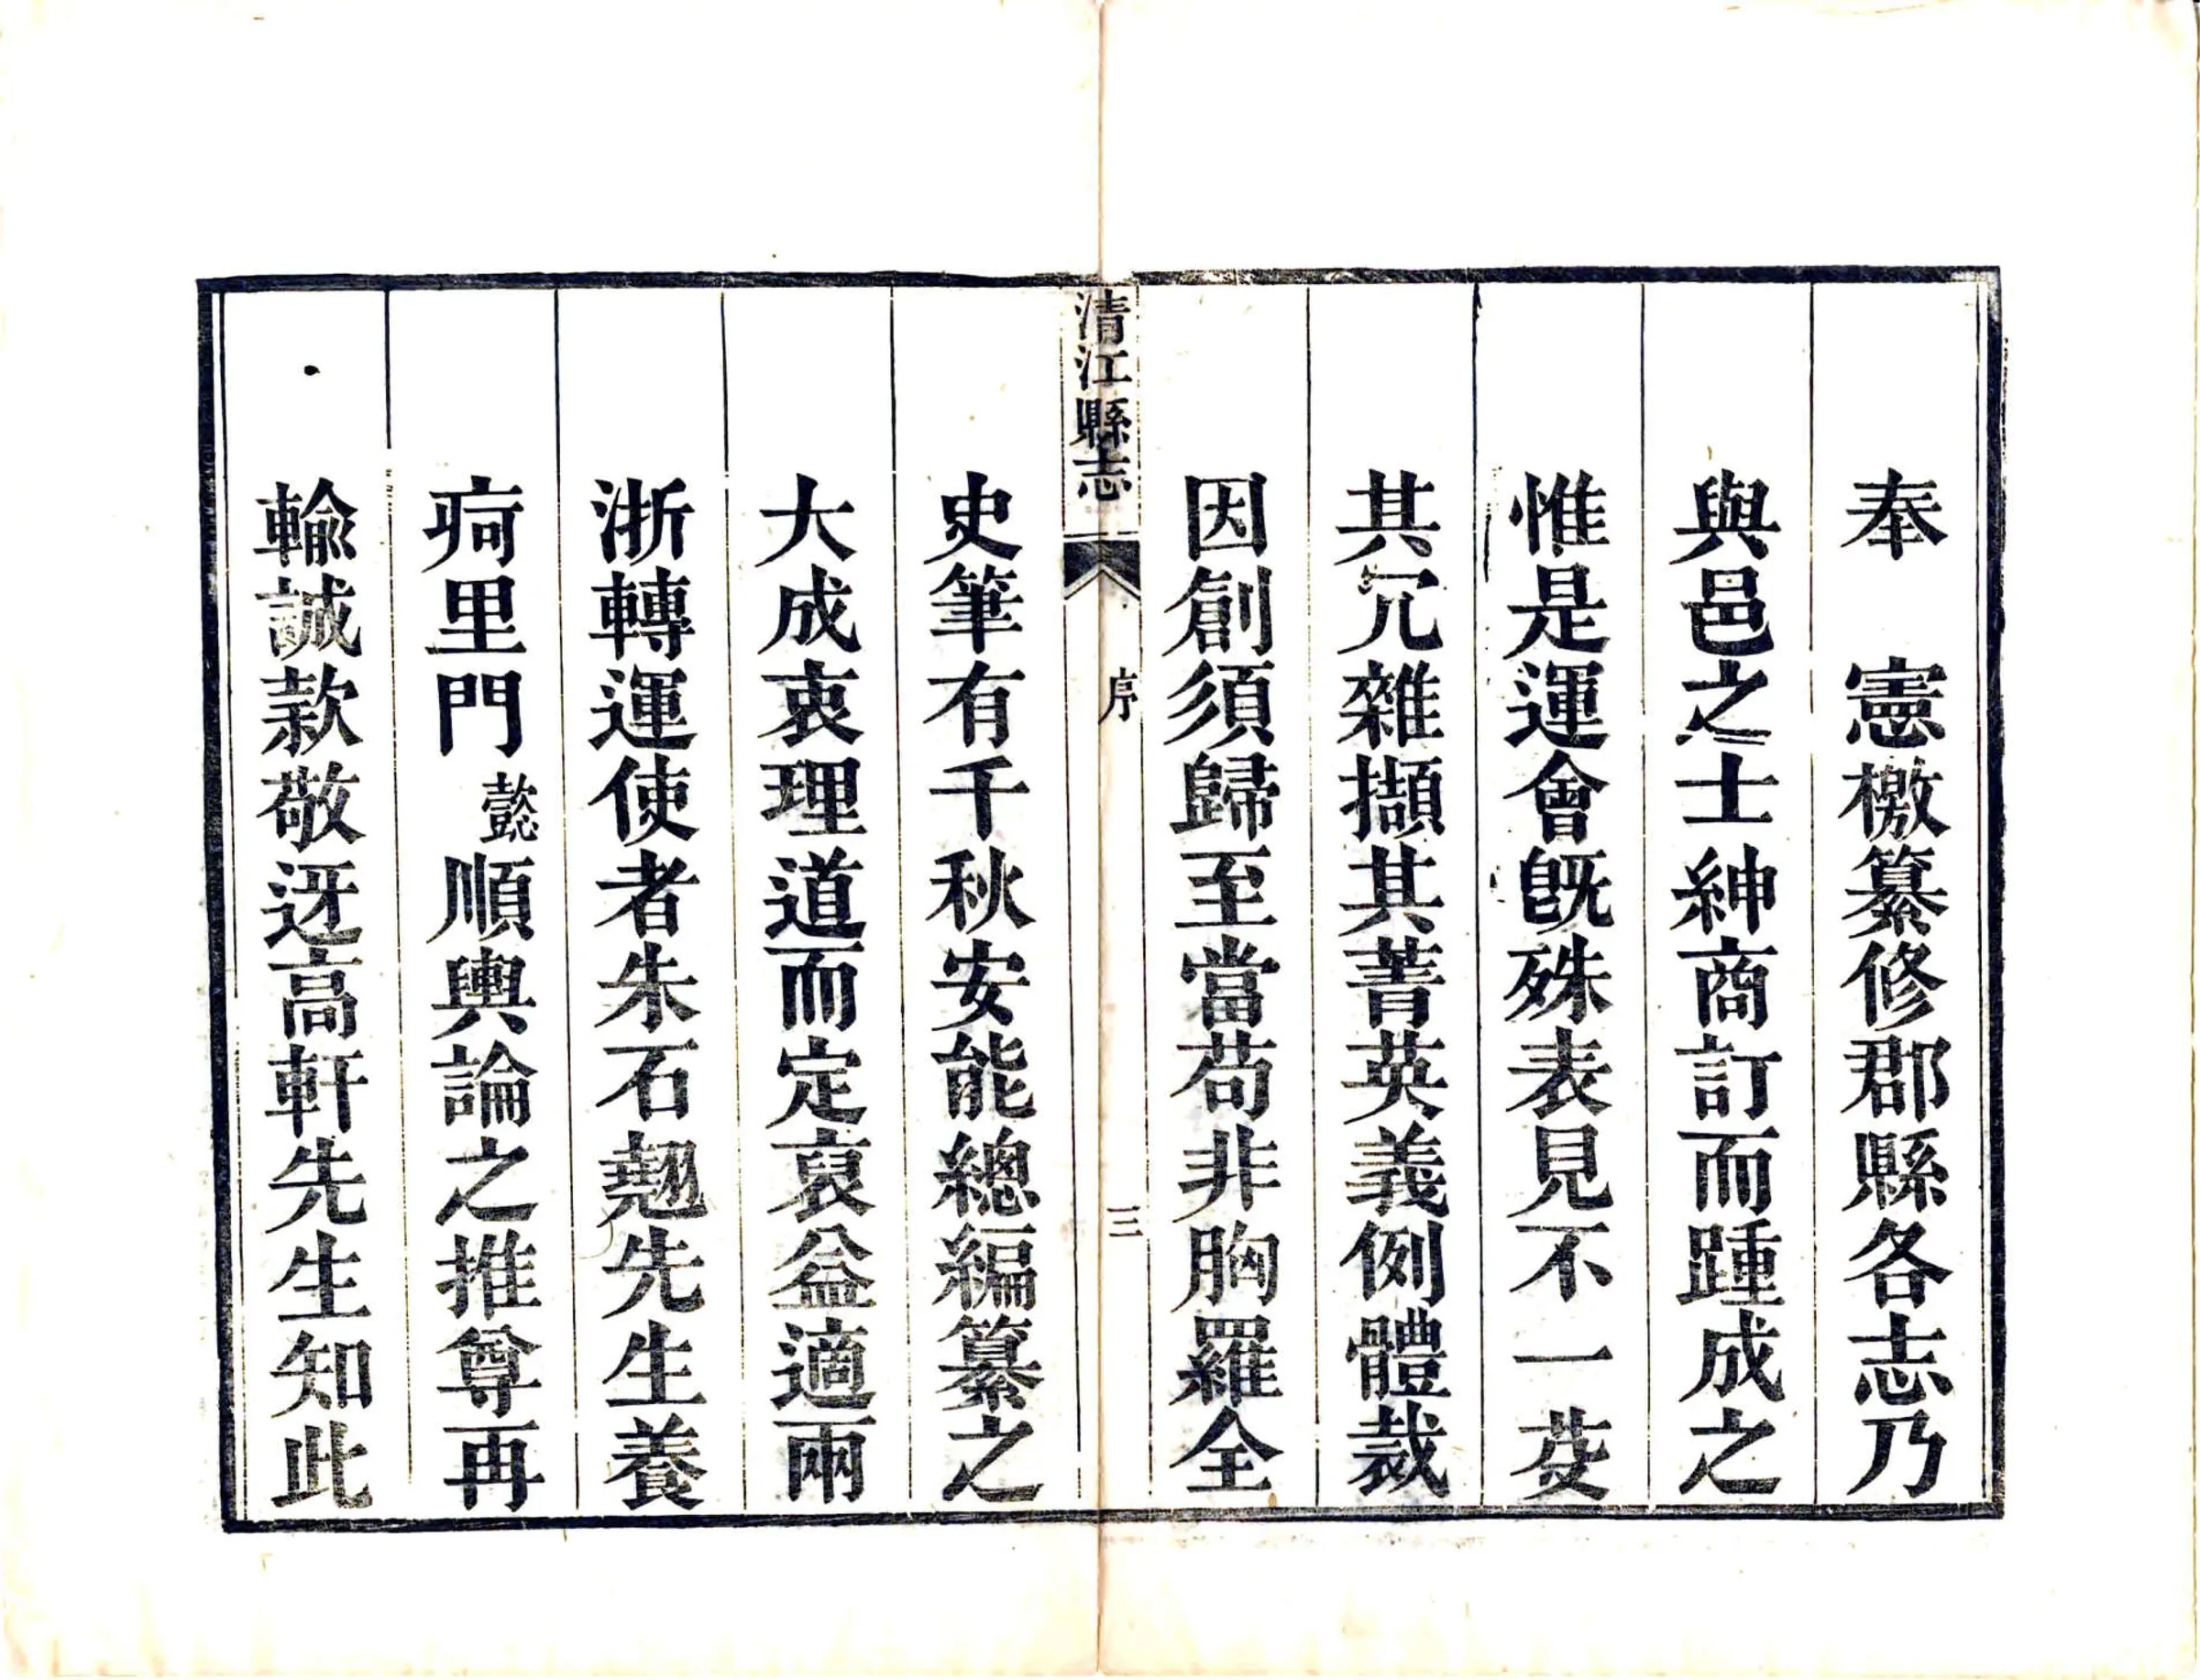 奉　憲檄纂修郡縣各志乃
與邑之士紳商訂而踵成之
惟是運會旣殊表見不一芟
其冗雜擷其菁英義例體裁
因創須歸至當苟非胸羅全
清江縣志
序
三
史筆有千秋安能總編纂之
大成衷理道而定裒益適兩
浙轉運使者朱石翹先生養
疴里門懿順輿論之推尊再
輸誠款敬迓高軒先生知此